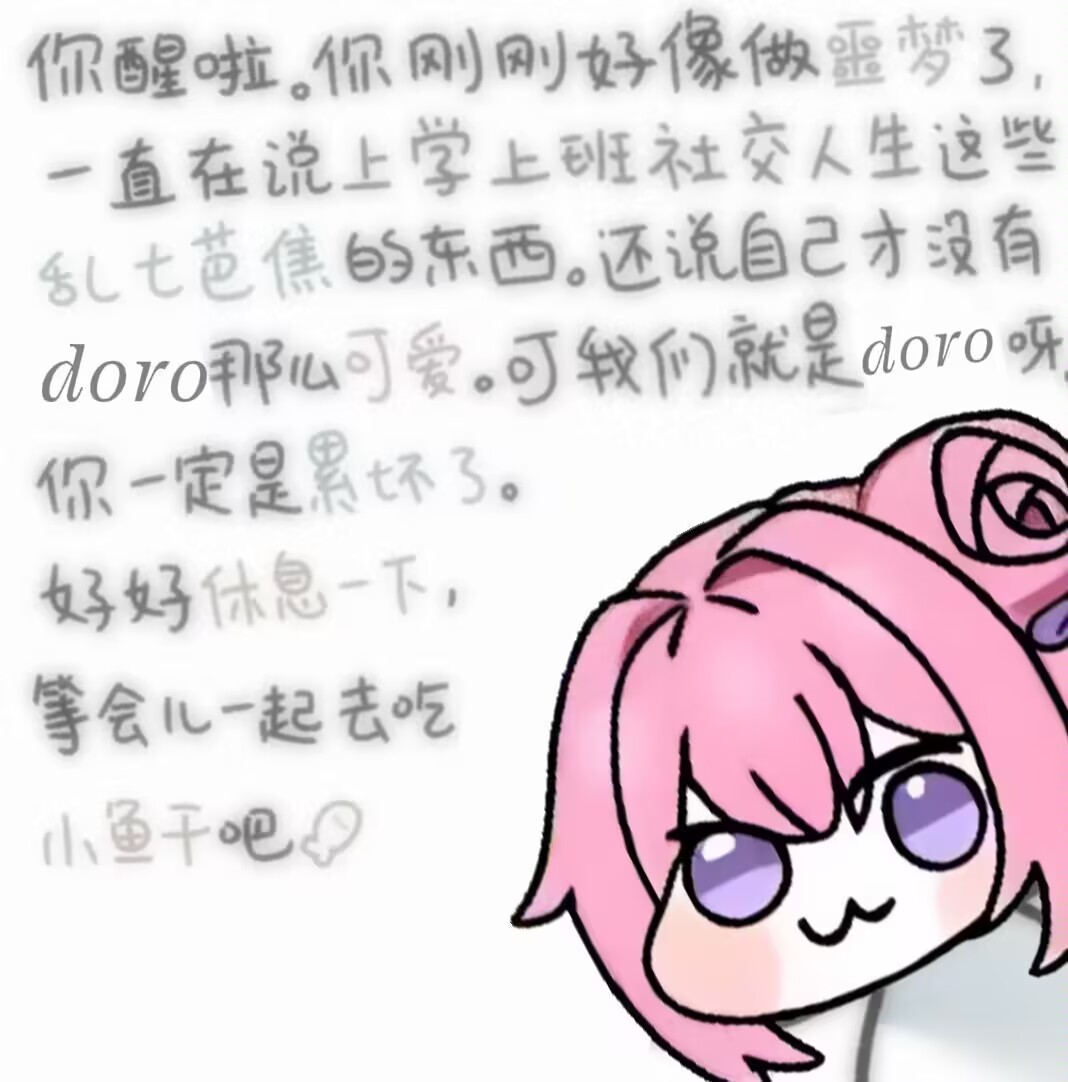 你醒啦。你刚刚好像做噩梦了,
一直在说上学上班社交人生这些
乱七芭焦的东西。还说自己才没有
doro那么可爱。可我们就是doro呀,
你一定是累坏了。
好好休息一下,
等会儿一起去吃
小鱼干吧